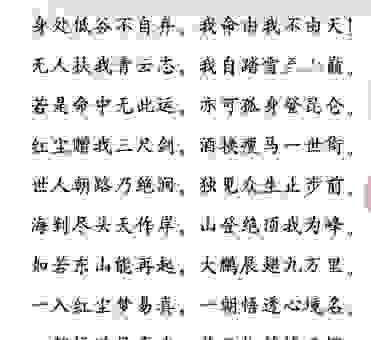 身处低谷不自弃，我命由我不由天！
无人扶我青云志，我自踏雪至山巅。
若是命中无此运，亦可孤身登昆仑。
红尘赠我三尺剑，酒换瘦马一世街。
世人朝路乃绝涧，独见众生止步前。
海到尽头天作岸，山登绝顶我为峰。
如若东山能再起，大鹏展翅九万里。
一入红尘梦易真，一朝悟透心境名。